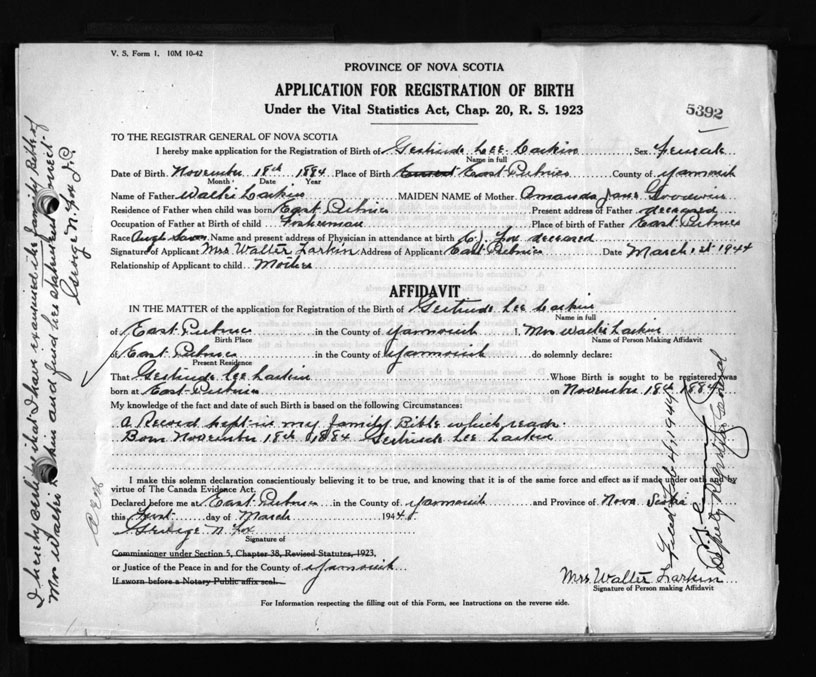 V. S. Form 1. 10M 10-42
PROVINCE OF NOVA SCOTIA
APPLICATION FOR REGISTRATION OF BIRTH
Under the Vital Statistics Act, Chap. 20, R. S. 1923
5392
TO THE REGISTRAR GENERAL OF NOVA SCOTIA
I hereby make application for the Registration of Birth of Gertrude Lee Larkin Sex Female
Name in full
Date of Birth November 18th 1884 Place of Birth East Pubnico County of Yarmouth
Month Date Year
Name of Father Walter Larkin MAIDEN NAME of Mother Amanda Jane Goodwin
Residence of Father when child was born East Pubnico Present address of Father deceased
Occupation of Father at Birth of child Fisherman Place of birth of Father East Pubnico
Race Anglo Saxon Name and present address of Physician in attendance at birth Fox deceased
Signature of Applicant Mrs Walter Larkin Address of Applicant East Pubnico Date March 1st 1944
Relationship of Applicant to child Mother
AFFIDAVIT
IN THE MATTER of the application for Registration of the Birth of Gertrude Lee Larkin
Name in full
of East Pubnico in the County of Yarmouth I, Mrs Walter Larkin
Birth Place Name of Person Making Affidavit
of East Pubnico in the County of Yarmouth do solemnly declare:
Present Residence
That Gertrude Lee Larkin Whose Birth is sought to be registered was
born at East Pubnico on November 18th 1884
My knowledge of the fact and date of such Birth is based on the following Circumstances:
A Record kept in my family Bible which reads
Born November 18th 1884 Gertrude Lee Larkin
I make this solemn declaration conscientiously believing it to be true, and knowing that it is of the same force and effect as if made under oath and by
virtue of The Canada Evidence Act.
Declared before me at East Pubnico in the County of Yarmouth and Province of Nova Scotia
this First day of March 1944
George N. Fox
Signature of
Commissioner under Section 5, Chapter 38, Revised Statutes, 1923,
or Justice of the Peace in and for the County of Yarmouth
If sworn before a Notary Public affix seal.
Mrs. Walter Larkin
Signature of Person making Affidavit
For Information respecting the filling out of this Form, see Instructions on the reverse side.
I hereby certify that I have examined the family Bible of
Mrs Walter Larkin and find her statement correct
George N. Fox J.P.